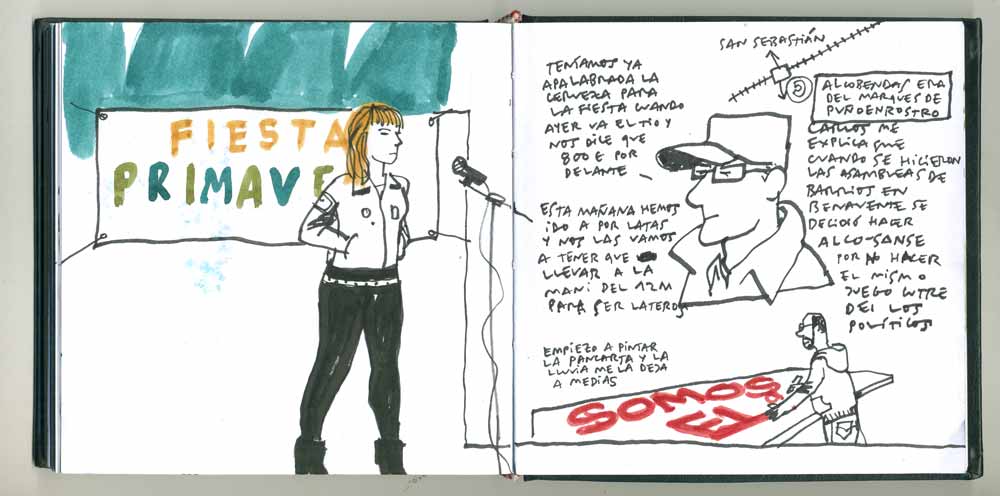 FIESTA
PRIMAVE
TENÍAMOS YA
APALABRADA LA
CERVEZA PARA
LA FIESTA CUANDO
AYER VA EL TIO Y
NOS DICE QUE
800 E POR
DELANTE
ESTA MAÑANA HEMOS
IDO A POR LATAS
Y NOS LAS VAMOS
A TENER QUE
LLEVAR A LA
MANI DEL 12M
PARA SER LATEROS
EMPIEZO A PINTAR
LA PANCARTA Y LA
LLUVIA ME LA DEJA
A MEDIAS
SAN SEBASTIÁN
5
ALCOBENDAS ERA
DEL MARQUES DE
PUÑOENROSTRO
CARLOS ME
EXPLICA QUE
CUANDO SE HICIERON
LAS ASAMBLEAS DE
BARRIOS EN
BENAVENTE SE
DECIDIÓ HACER
ALCO-SANSE
POR NO HACER
EL MISMO
JUEGO CUTRE
DE LOS
POLÍTICOS
SOMOS
EL